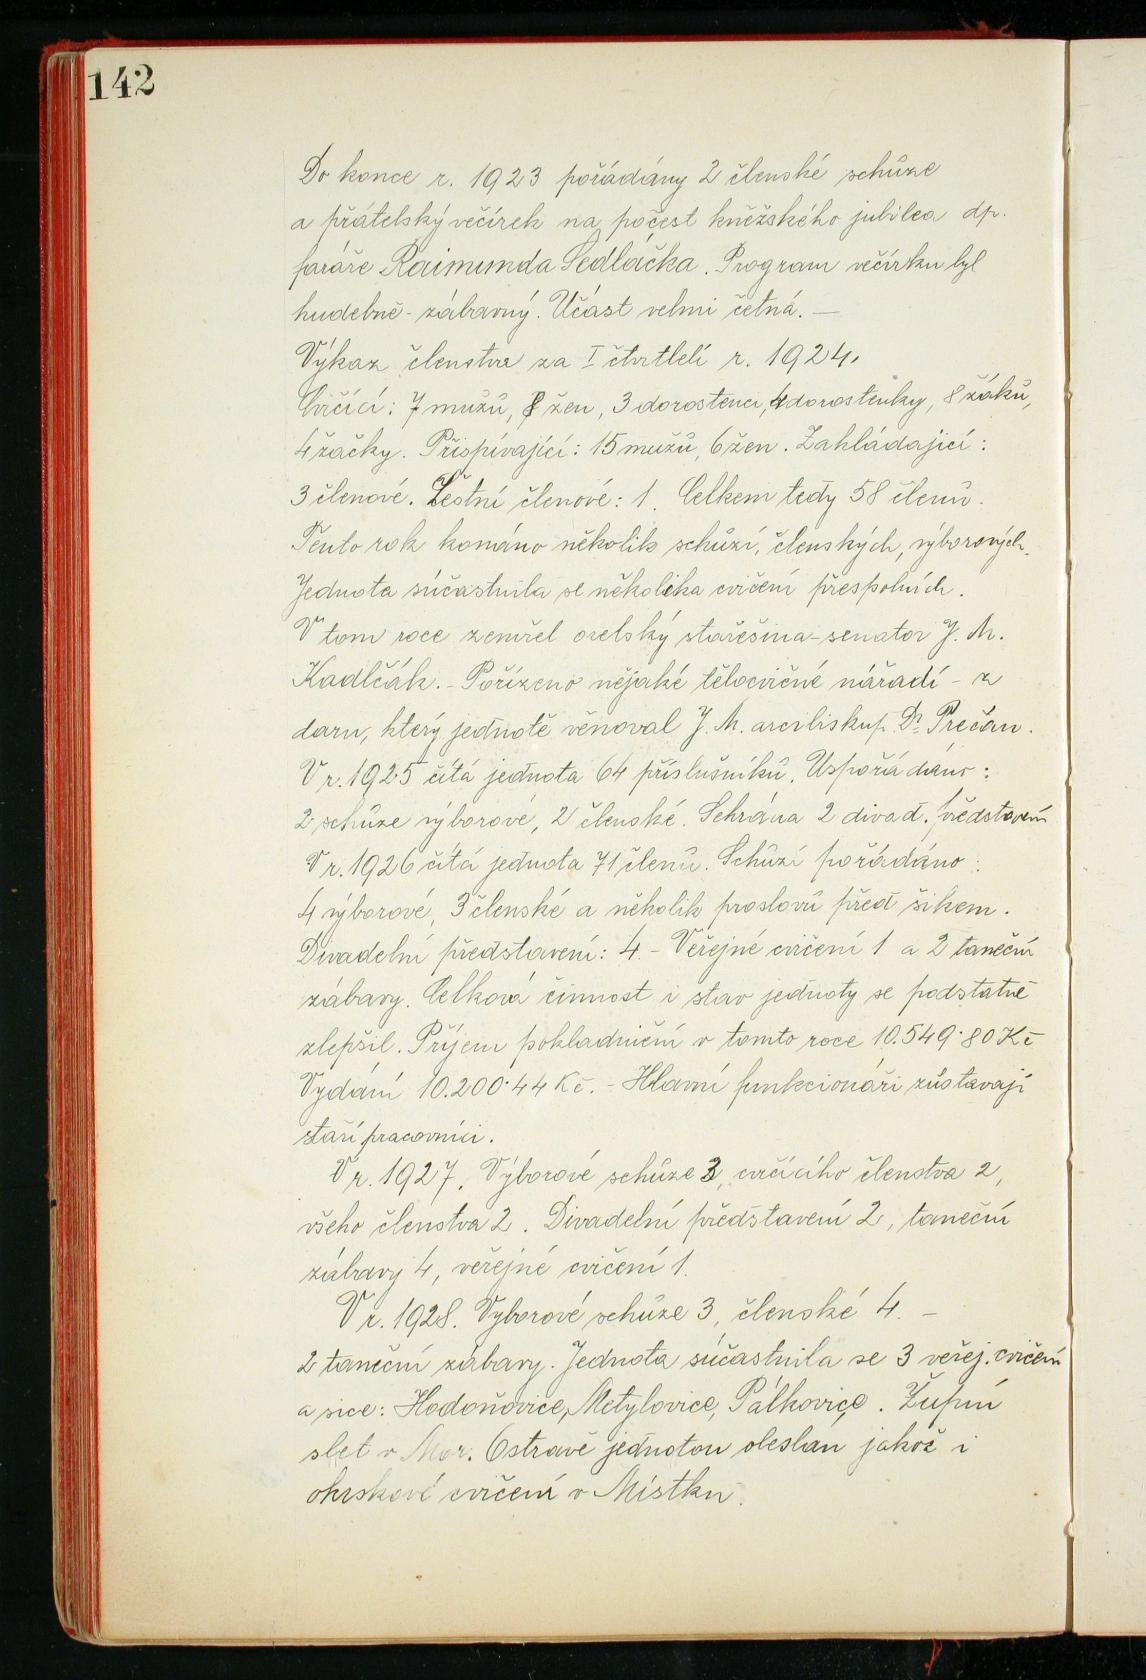 142
Do konce r. 1923 pořádány 2 členské schůze
a přátelský večírek na počest kněžského jubilea dp.
faráře Raimunda Sedláčka. Program večírku byl
hudebně-zábavný. Účast velmi četná. —
Výkaz členstva za I čtvrtletí r. 1924.
Cvičící: 7 mužů, 8 žen, 3 dorostenci, 4 dorostenky, 8 žáků,
4 žačky. Přispívající: 15 mužů, 6 žen. Zakládající:
3 členové. Čestní členové: 1. Celkem tedy 58 členů.
Tento rok konáno několik schůzí, členských, výborových.
Jednota súčastnila se několika cvičení přespolních.
V tom roce zemřel orelský stařešina-senator J. M.
Kadlčák. - Pořízeno nějaké tělocvičné nářadí - z
daru, který jednotě věnoval J. M. arcibiskup Dr. Prečan.
V r. 1925 čítá jednota 64 příslušníků. Uspořádáno:
2 schůze výborové, 2 členské. Sehrána 2 divad. představení
V r. 1926 čítá jednota 71 členů. Schůzí pořádáno:
4 výborové, 3 členské a několik proslovů před šikem.
Divadelní představení: 4. - Veřejné cvičení 1 a 2 taneční
zábavy. Celková činnost i stav jednoty se podstatně
zlepšil. Příjem pokladniční v tomto roce 10.549·80 Kč
Vydání 10.200·44 Kč. - Hlavní funkcionáři zůstavají
staří pracovníci.
V r. 1927. Výborové schůze 3, cvičícího členstva 2,
všeho členstva 2. Divadelní představení 2, taneční
zábavy 4, veřejné cvičení 1.
V r. 1928. Vyborové schůze 3, členské 4. -
2 taneční zábavy. Jednota súčastnila se 3 veřej. cvičení
a sice: Hodoňovice, Metylovice, Pálkovice. Župní
slet v Mor. Ostravě jednotou obeslán jakož i
okrskové cvičení v Místku.